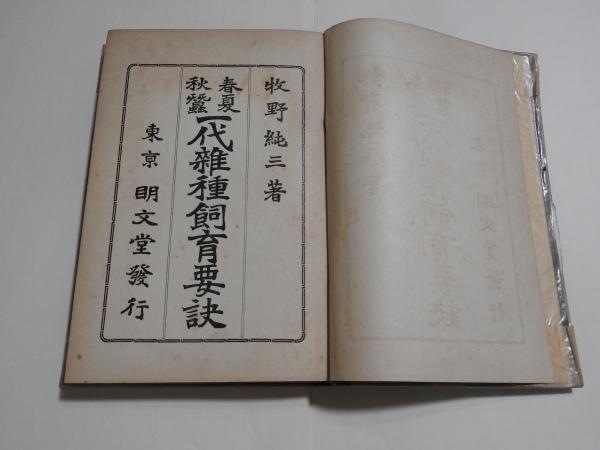 牧野純三著
春夏秋蠶一代雜種飼育要訣
東京 明文堂發行